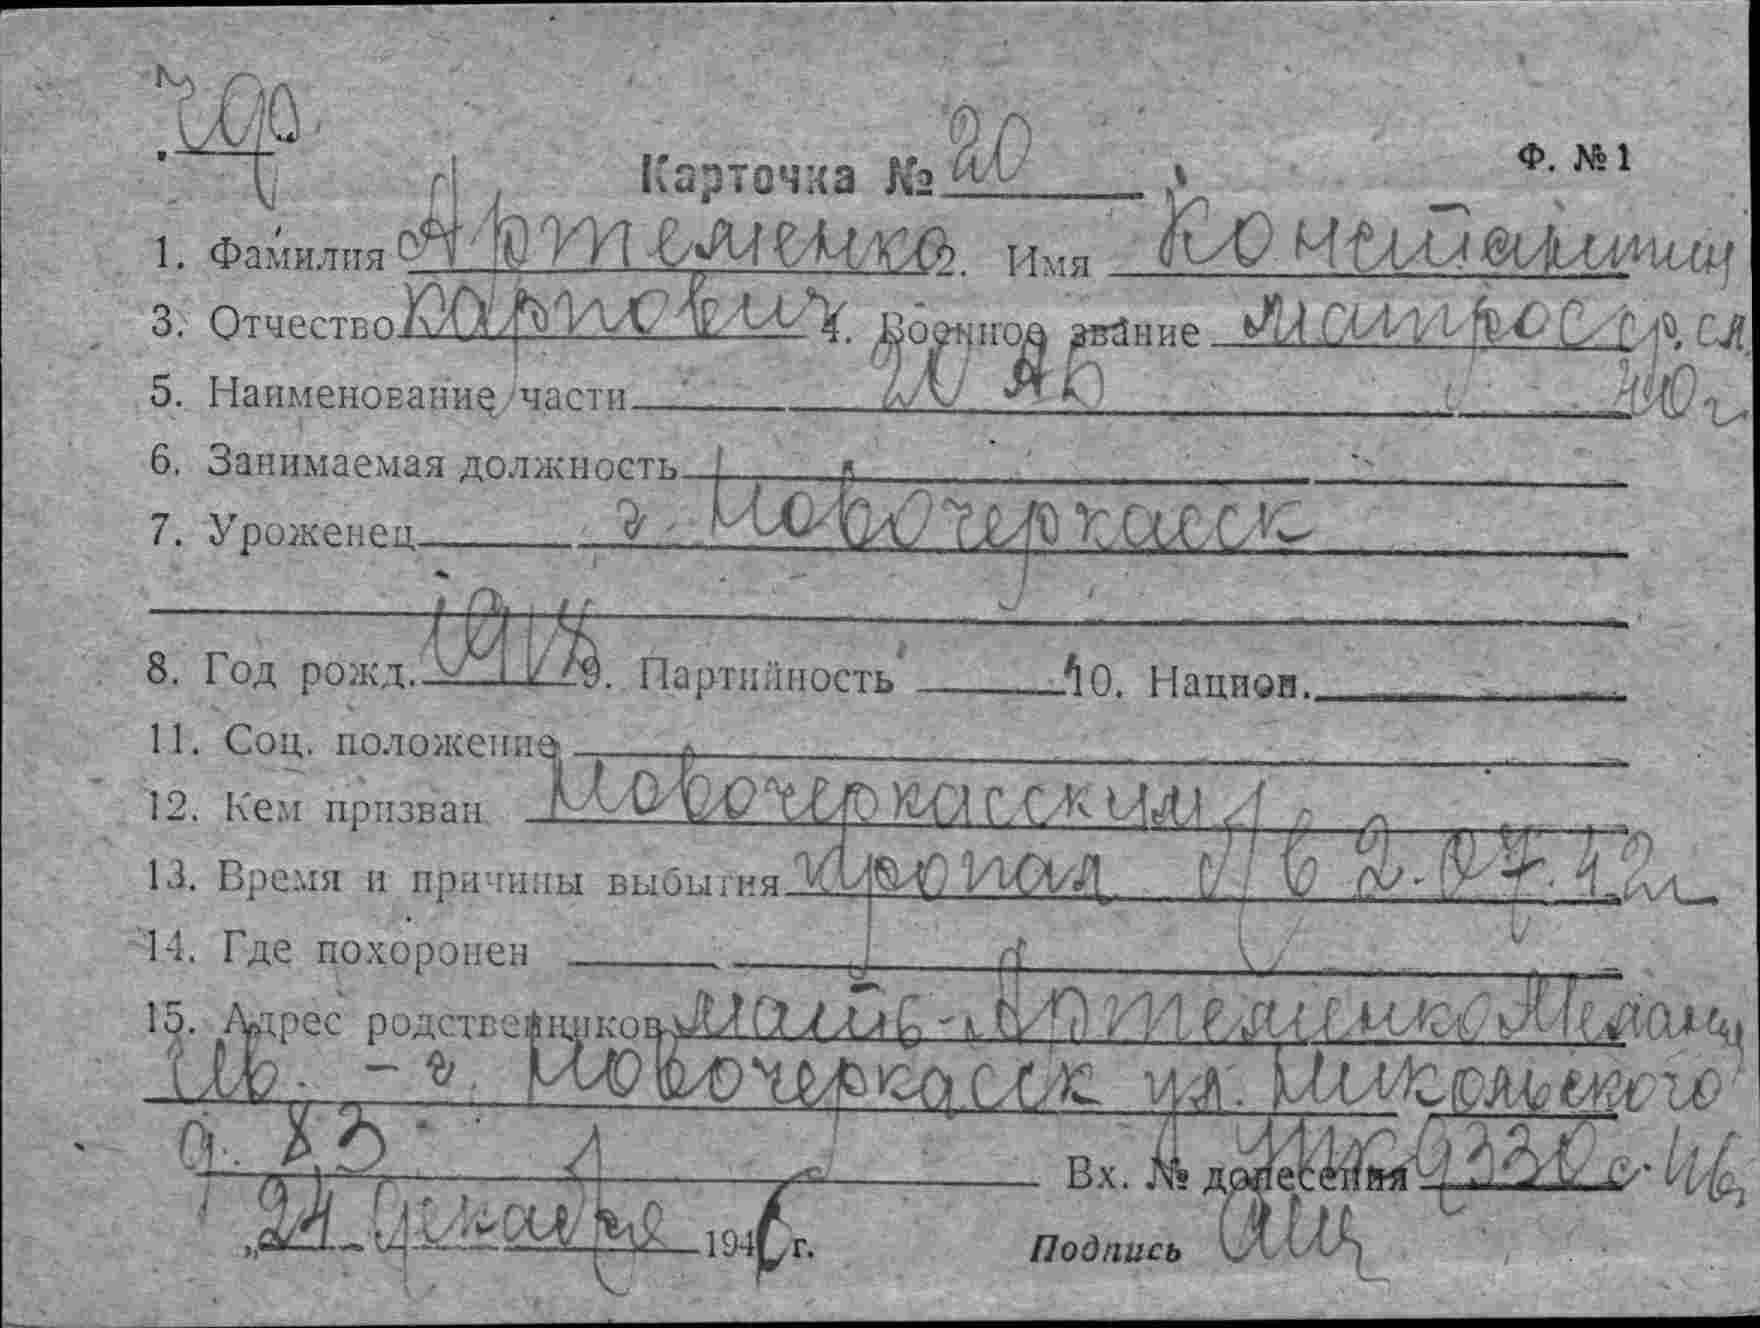 Карточка № 20 Ф. № 1
1. Фамилия Артеменко 2. Имя Константин
3. Отчество Карпович 4. Военное звание матрос ср. сл.
5. Наименование части 20 АБ 40 г
6. Занимаемая должность
7. Уроженец г. Новочеркасск
8. Год рожд. 1918 9. Партийность 10. Национ.
11. Соц. положение
12. Кем призван Новочеркасским
13. Время и причины выбытия пропал б 2.07.42 г
14. Где похоронен
15. Адрес родственников мать - Артеменко Мелания
Ив. - г. Новочеркасск ул. Никольского
д. 83 Вх. № донесения 9330 с.
„24 декабря 1946 г. Подпись